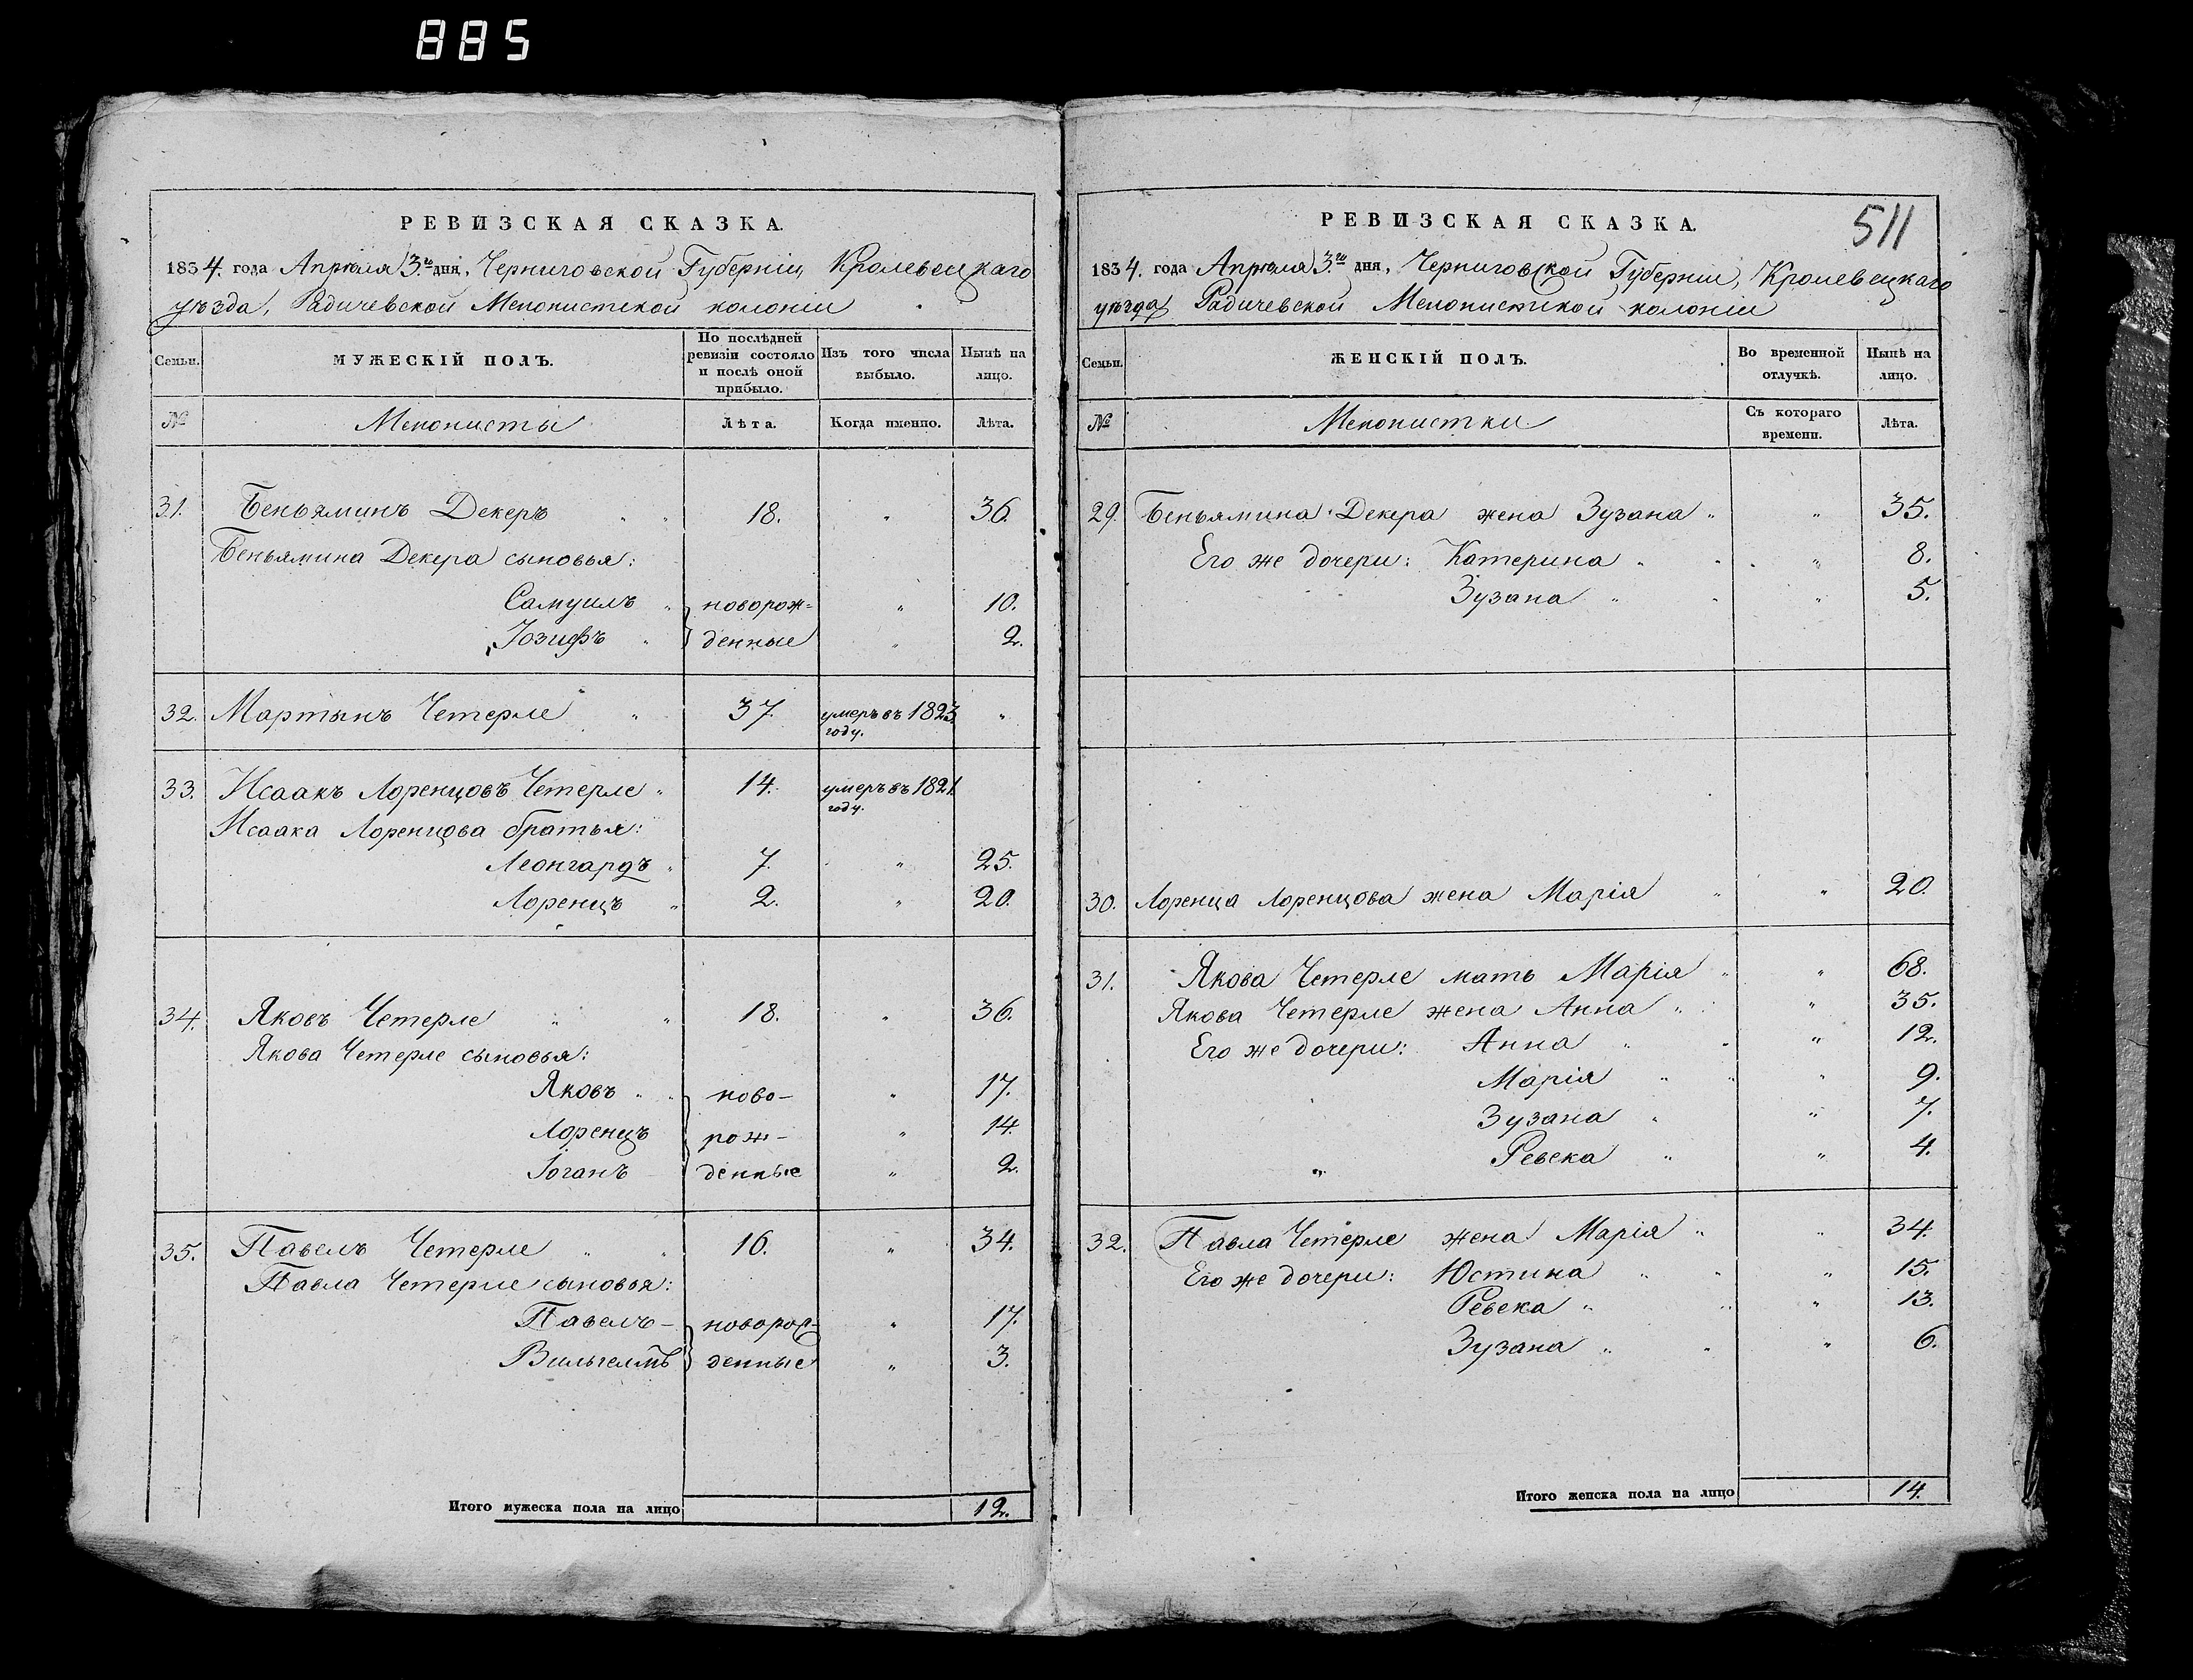 885
РЕВИЗСКАЯ СКАЗКА.
1834. года Апрѣля 3.го дня, Черниговской Губерніи, Кролевецкаго
уѣзда, Радичевской Менонистской колоніи
Семьи.
МУЖЕСКІЙ ПОЛЪ.
По послѣдней ревизіи состояло и послѣ оной прибыло.
Изъ того числа выбыло.
Нынѣ на лицо.
№
Менонисты
Лѣта.
Когда именно.
Лѣта.
31. Беньяминъ Декеръ " " 18. " 36.
Беньямина Декера сыновья:
Самуилъ " новорож= " 10.
Іозифъ " денные " 2.
32. Мартынъ Четерле " 37. умеръ въ 1823 году. "
33. Исаакъ Лоренцовъ Четерле " 14. умеръ въ 1821. году.
Исаака Лоренцова братья:
Леонгардъ " 7. " 25.
Лоренцъ " 2. " 20.
34. Яковъ Четерле " " 18. " 36.
Якова Четерле сыновья:
Яковъ " " ново- " 17.
Лоренцъ рож- " 14.
Іоганъ - денные " 2.
35. Павелъ Четерле " " 16. " 34.
Павла Четерле сыновья:
Павелъ - новорож- " 17.
Вильгелмъ денные " 3.
Итого мужеска пола на лицо 12.
511
РЕВИЗСКАЯ СКАЗКА.
1834. года Апрѣля 3.го дня, Черниговской Губерніи, Кролевецкаго
уѣзда, Радичевской Менонистской колоніи
Семьи.
ЖЕНСКІЙ ПОЛЪ.
Во временной отлучкѣ.
Нынѣ на лицо.
№
Менонистки
Съ котораго времени.
Лѣта.
29. Беньямина Декера жена Зузана " " 35.
Его же дочери: Катерина " " " 8.
Зузана " " " 5.
30. Лоренца Лоренцова жена Марія " " 20.
31. Якова Четерле мать Марія " " 68.
Якова Четерле жена Анна " " 35.
Его же дочери: Анна " " " 12.
Марія " " " 9.
Зузана " " 7.
" Ревека " " 4.
32. Павла Четерле жена Марія " " 34.
Его же дочери: Юстина " " " 15.
Ревека " " " 13.
Зузана " " " 6.
Итого женска пола на лицо 14.